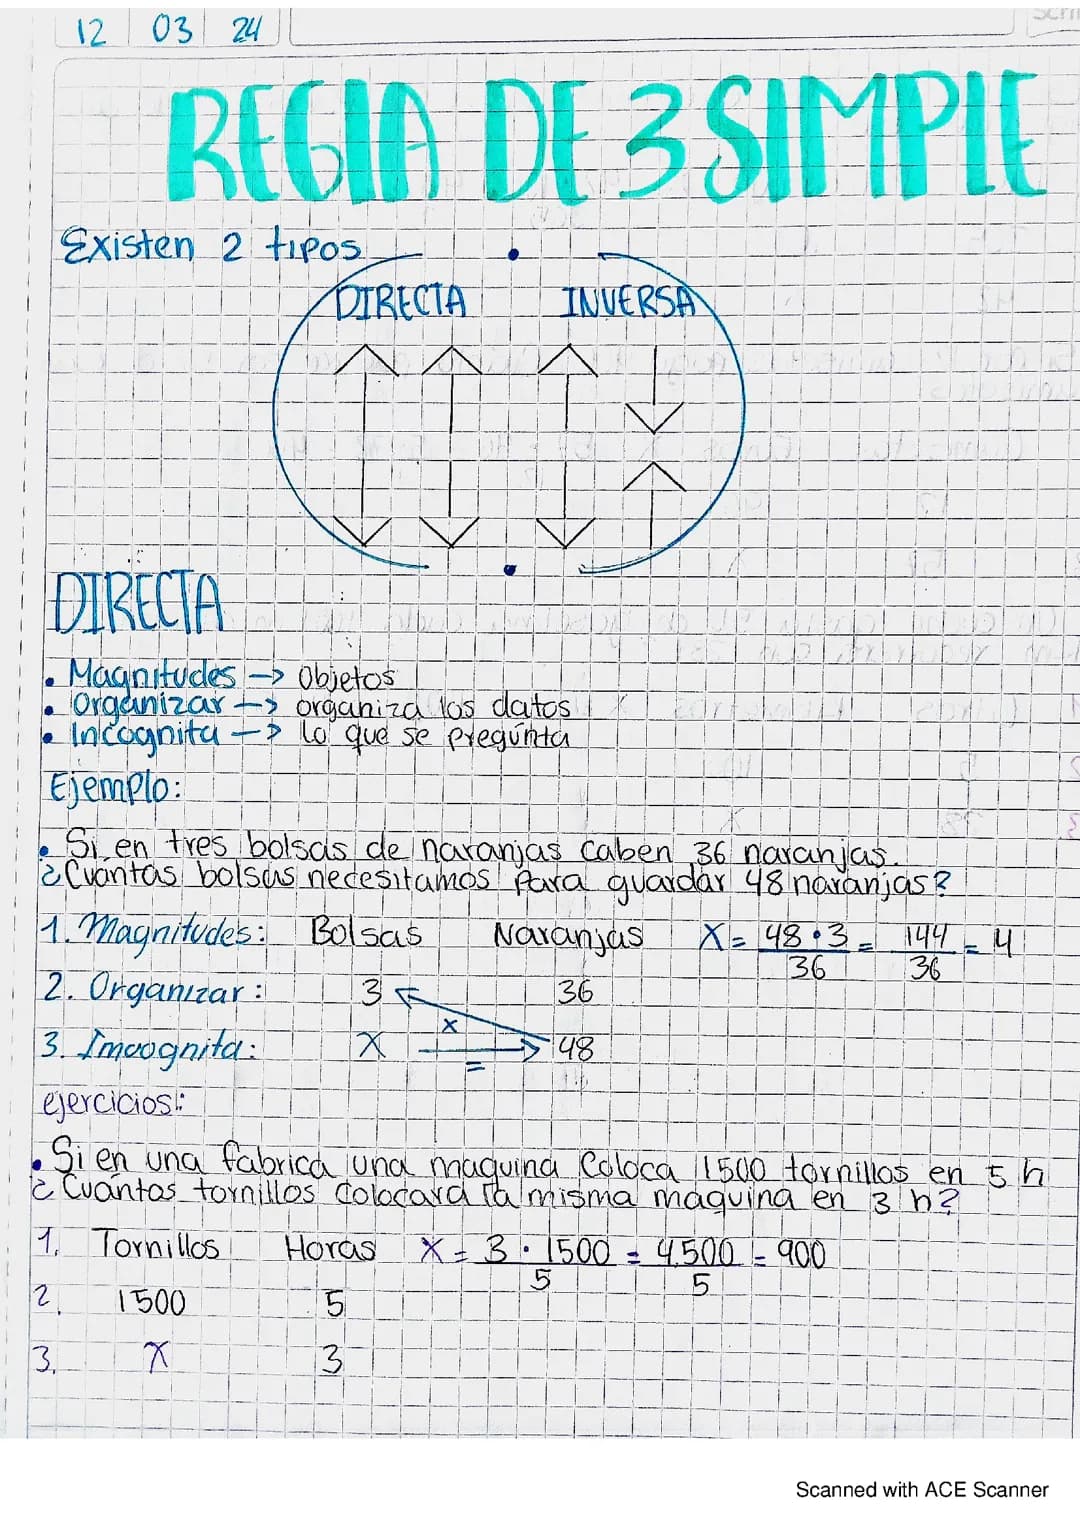 12 03 24
REGLA DE 3 SIMPLE
Existen 2 tipos
DIRECTA INVERSA
DIRECTA
• Magnitudes -> Objetos
• Organizar -> organiza los datos
• Incognita -> lo que se pregunta
Ejemplo:
• Si en tres bolsas de naranjas caben 36 naranjas.
¿Cuantas bolsas necesitamos para guardar 48 naranjas?
1. Magnitudes: Bolsas Naranjas X = 48 • 3 / 36 = 144 / 36 = 4
2. Organizar: 3 36
x
3. Incognita: X = 48
ejercicios:
• Si en una fabrica una maquina coloca 1500 tornillos en 5 h
¿Cuantos tornillos colocara la misma maquina en 3 h?
1. Tornillos Horas X = 3 • 1500 / 5 = 4.500 / 5 = 900
2. 1500 5
3. X 3
Scanned with ACE Scanner